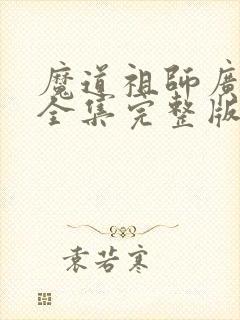 魔道祖師廣
全集完整版
袁若寒